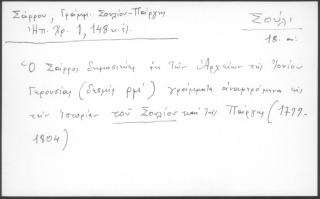 Σάρρου, Γράμμ. Σουλίου-Πάργης
Ἠπ. Χρ. 1, 148 κ.ἑ.
Σούλι
18. αἰ.
Ὁ Σάρρος δημοσιεύει ἐκ τῶν Ἀρχείων τῆς Ἰονίου
Γερουσίας (δεσμὶς ρμε') γράμματα ἀναφερόμενα εἰς
τὴν ἱστορίαν τοῦ Σουλίου καὶ τῆς Πάργης (1799-
1804)